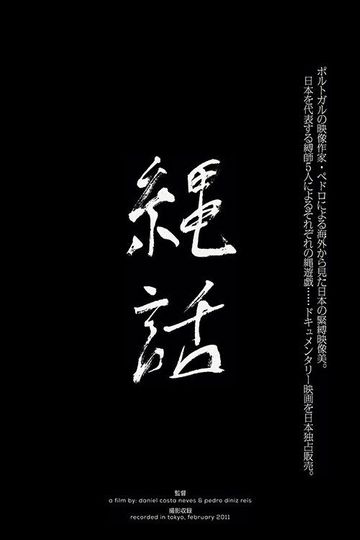 ポルトガルの映像作家・ペドロによる海外から見た日本の緊縛映像美。
日本を代表する縛師5人によるそれぞれの縄遊戯……ドキュメンタリー映画を日本独占販売。
縄話
監督
a film by: daniel costa neves & pedro diniz reis
撮影収録
recorded in tokyo, february 2011